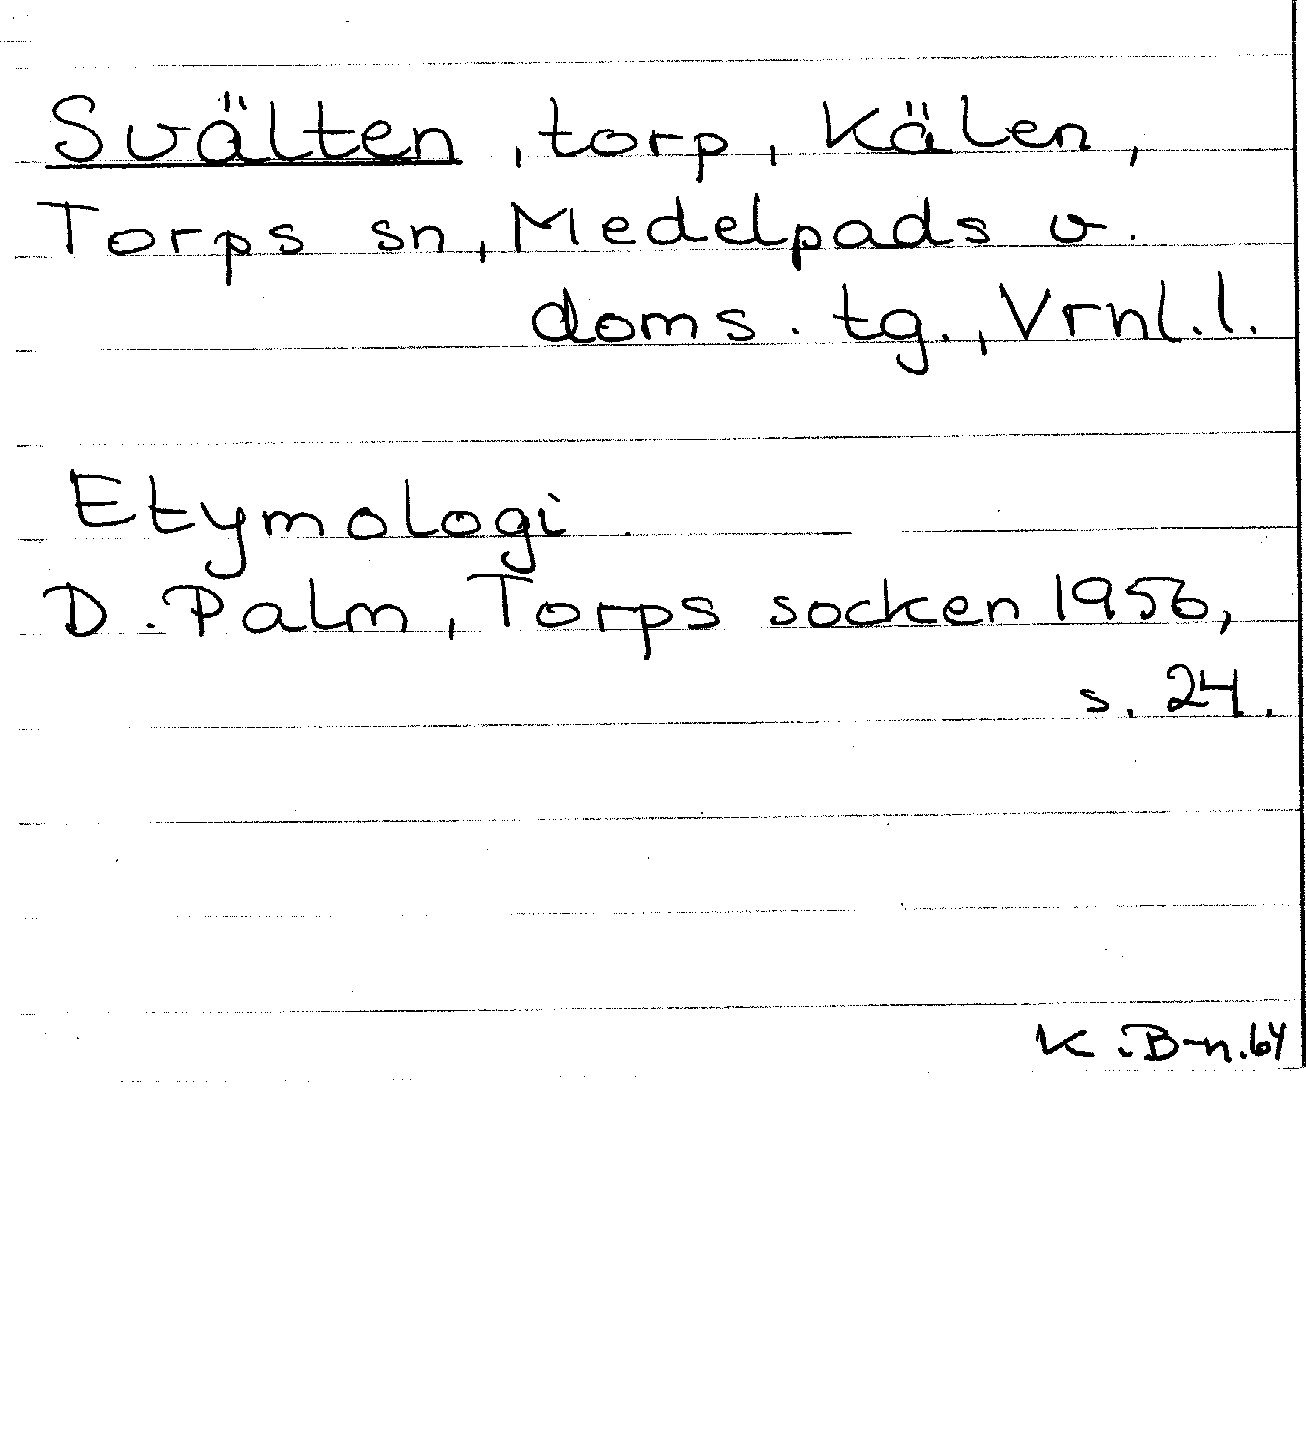 Svälten, torp, Kälen,
Torps sn, Medelpads v.
doms. tg., Vrnl.l.
Etymologi.
D. Palm, Torps socken 1956,
s. 24.
K.B-n.64